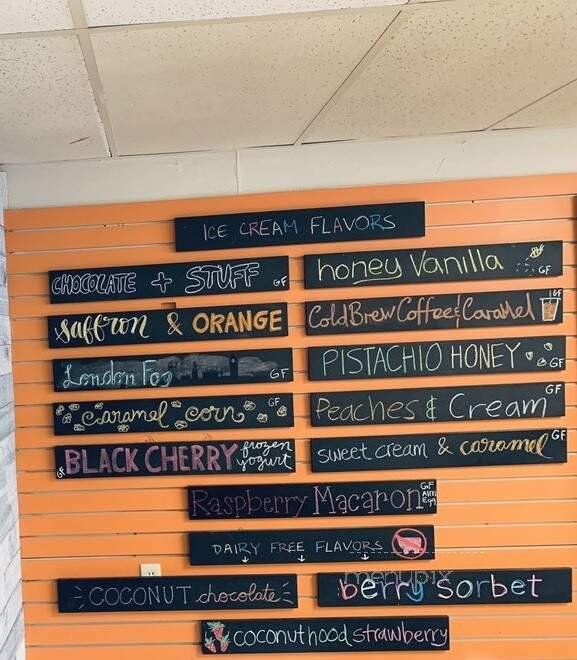 ICE CREAM FLAVORS
CHOCOLATE + STUFF GF
honey Vanilla GF
saffron & ORANGE
Cold Brew Coffee & Caramel GF
London Fog GF
PISTACHIO HONEY GF
caramel corn GF
Peaches & Cream GF
GF BLACK CHERRY frozen yogurt
sweet cream & caramel GF
Raspberry Macaron GF Alm Egg
DAIRY FREE FLAVORS
COCONUT chocolate
berry sorbet
menupix
coconuthood strawberry